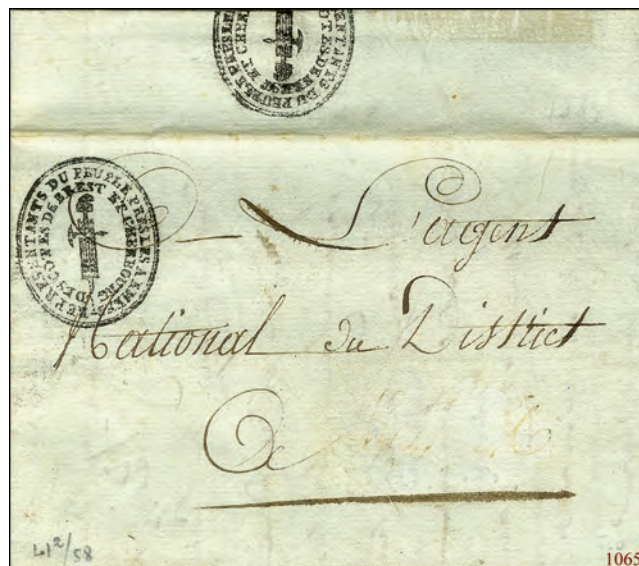 REPRESENTANTS DU PEUPLE PRES LES ARMEES
DES COTES DE BREST ET CHERBOURG
REPRESENTANTS DU PEUPLE PRES LES ARMEES
DES COTES DE BREST ET CHERBOURG
A L'agent
National du District
De
41²/58
1065